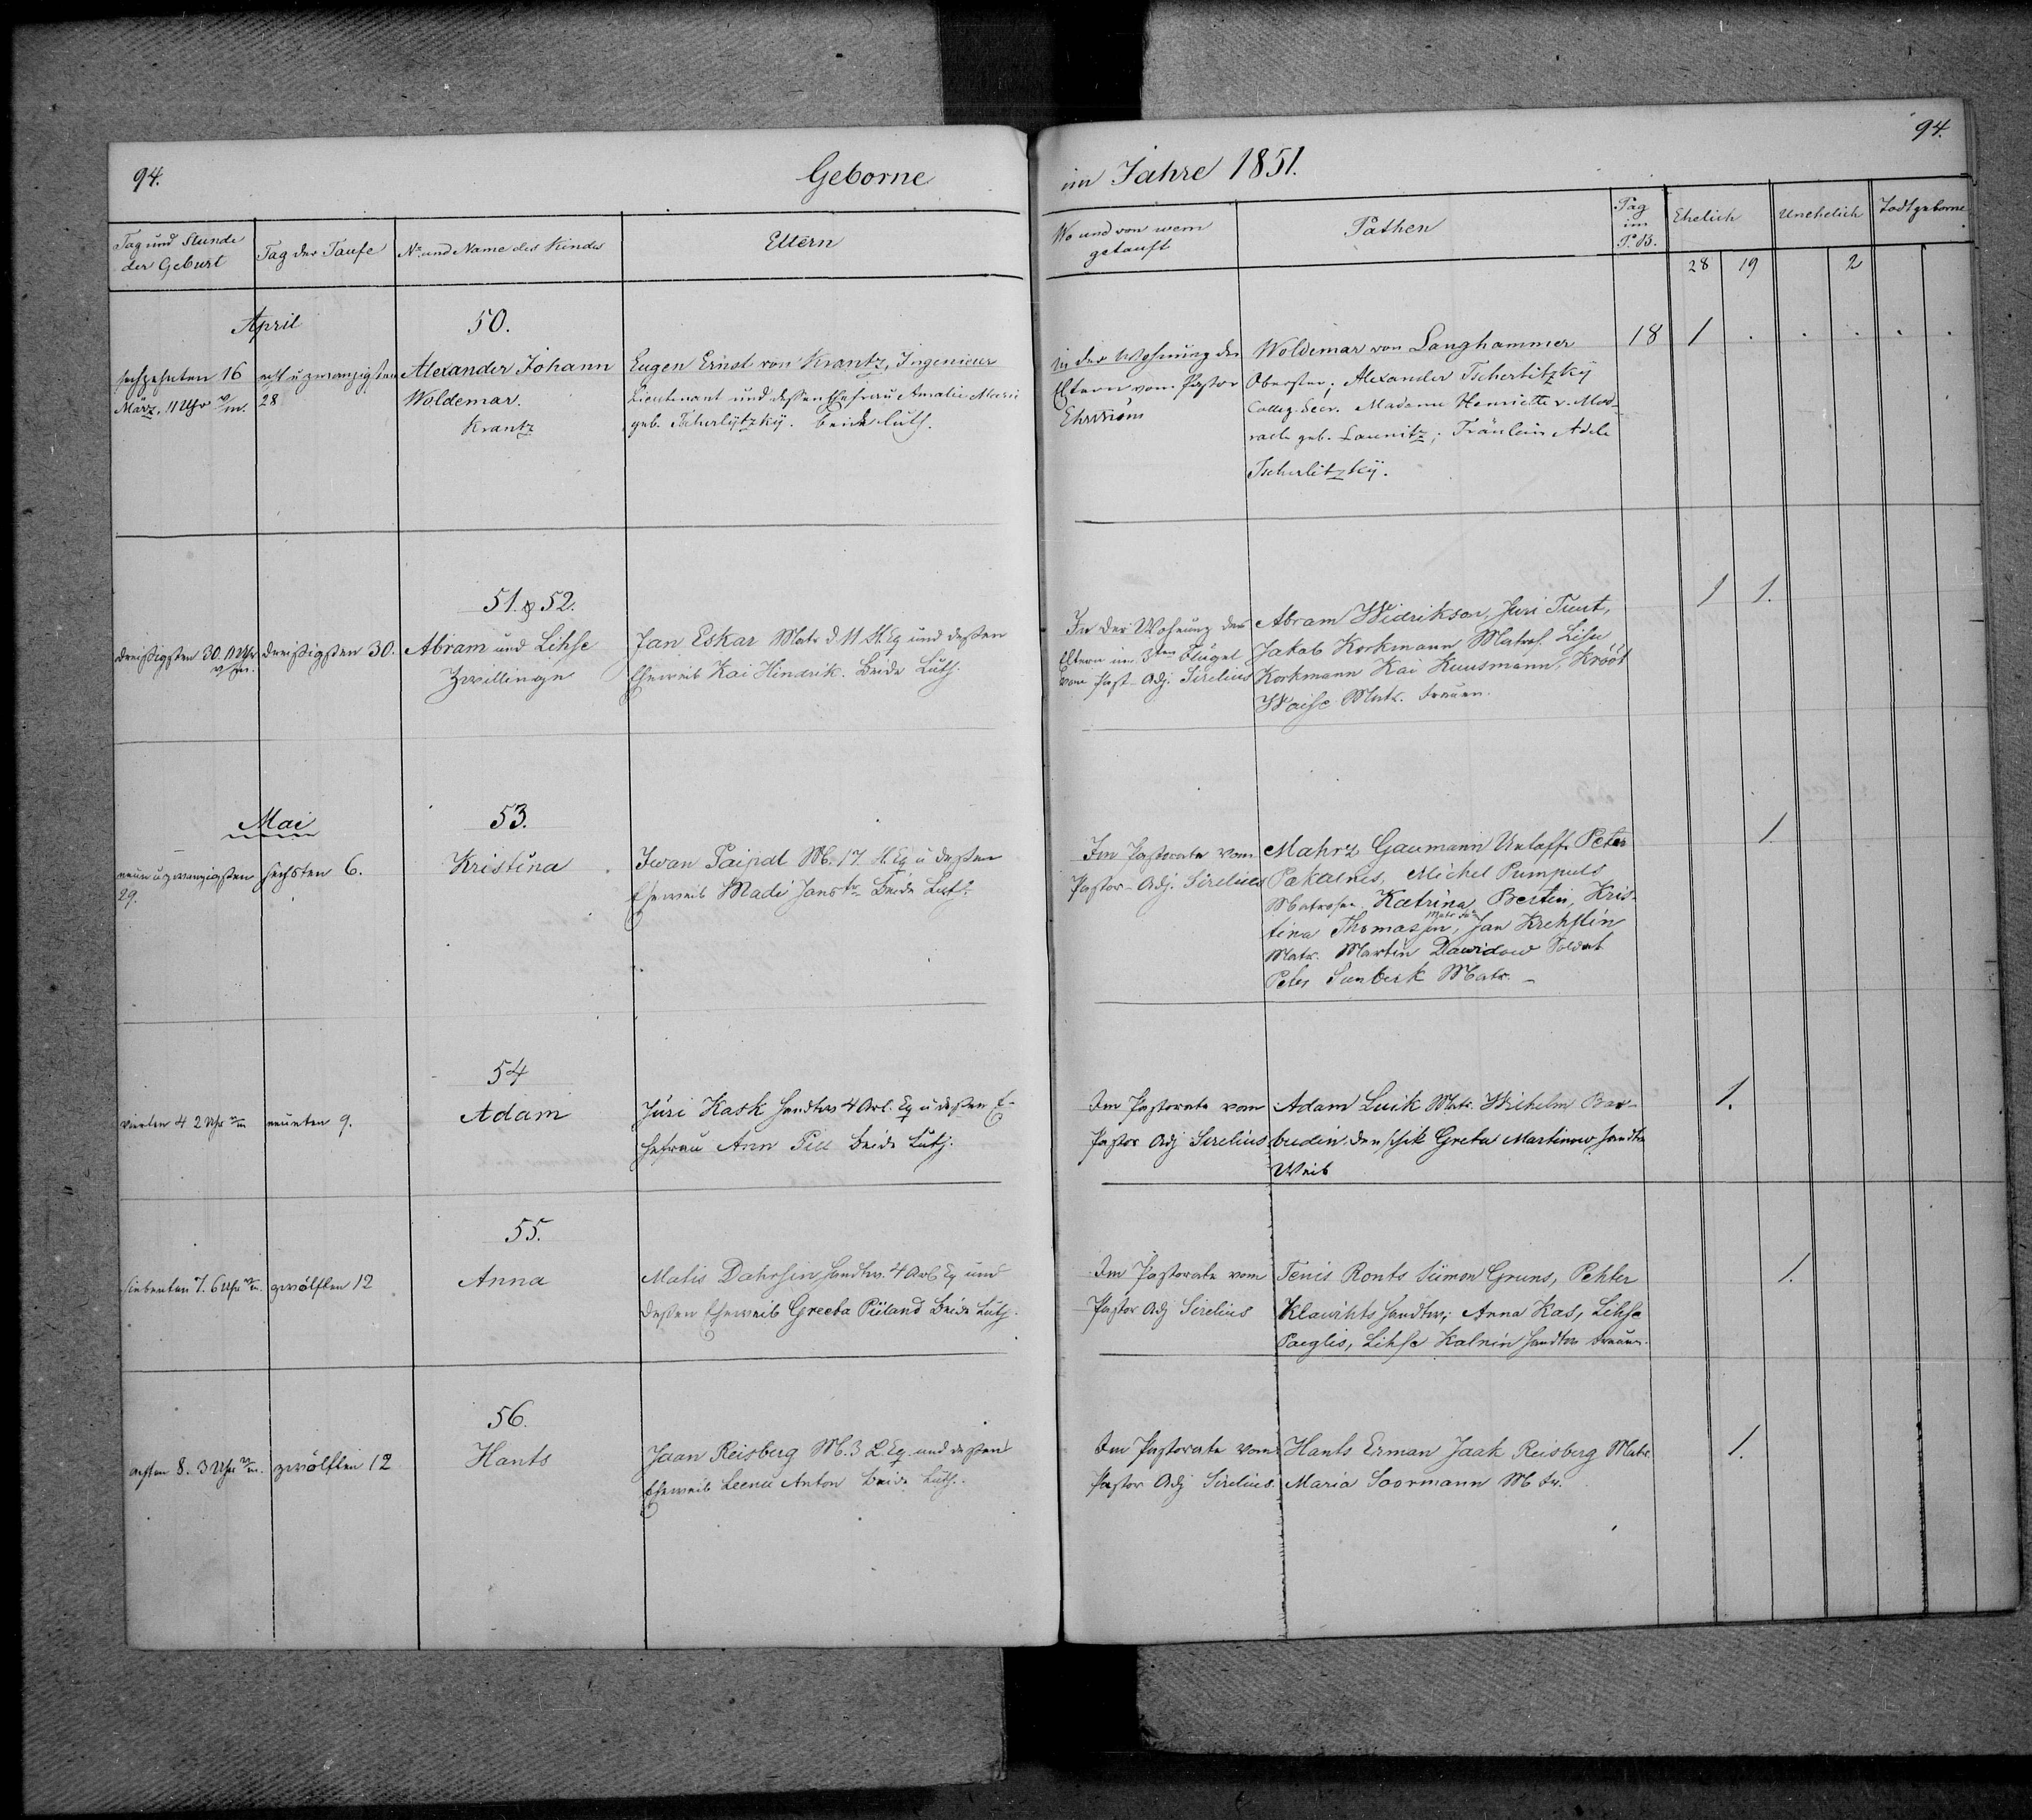 94.
Geborne
Tag und Stunde der Geburt
Tag der Taufe
No und Name des Kindes
Eltern
April
50.
sechzehnten 16
März, 11 Uhr v/m.
acht u zwanzigsten
28
Alexander Johann
Woldemar.
Krantz
Eugen Ernst von Krantz, Ingenieur
Lieutenant und deßen Ehefrau Amalie Marie
geb. Tscherlytzky. beide Luth.
51. & 52.
dreißigsten 30. 11 Uhr
v/m.
dreißigsten 30.
Abram und Lihse
Zwillinge
Jan Eskar Matr d. 11 Fl. Eq und deßen
Eheweib Kai Hindrik. Beide Luth.
Mai
53.
neun u zwanzigsten
29.
sechsten 6.
Kristina
Iwan Paipal M. 17. Fl. Eq u deßen
Eheweib Madi Jans tr Beide Luth.
54
vierten 4 2 Uhr n/m
neunten 9.
Adam
Jüri Kask Handw 4 Arb. Eq u deßen E-
hefrau Ann Pill Beide Luth.
55.
siebenten 7. 6 Uhr n/m.
zwölften 12
Anna
Matis Dahrsin Handw. 4 Arb Eq und
deßen Eheweib Greeta Püland Beide Luth.
56.
achten 8. 3 Uhr n/m.
zwölften 12
Hants
Jaan Reisberg M. 3 L. Eq und deßen
Eheweib Leenu Anton Beide Luth.
im Jahre 1851.
94.
Wo und von wem getauft
Pathen
Tag im P. B.
Ehelich
Unehelich
Todtgeborne
28 19 2
In der Wohnung der
Eltern vom Pastor
Ehrström
Woldemar von Langhammer
Oberster; Alexander Tscherlitzky
Colleg. Secr. Madame Henriette v. Mod-
rach geb. Launitz; Fräulein Adele
Tscherlitzky.
18 1 . . . . .
In der Wohnung der
Eltern im 3ten Flügel
vom Past- Adj. Sirelius
Abram Widrikson, Juri Tuut,
Jakob Korkmann, Matros. Lisu
Korkmann Kai Kuusmann, Krööt
Waise Matr. Frauen.
1 1.
Im Pastorate vom
Pastor-Adj. Sirelius
Mahrz Gaumann Unteroff. Peter
Pakalnes, Michel Pumpuls
Matrosen Katrina Bertin, Kris-
tina Thomasen, Jan Krehslin
Matr. Martin Dawidow Soldat
Peter Sunberk Matr. -
1.
Im Pastorate vom
Pastor Adj Sirelius
Adam Luik Matr. Wilhelm Bar-
budin Denschik Greta Martinow Handw
Weib
1.
Im Pastorate vom
Pastor Adj Sirelius
Tenis Ronts Siimon Gruns, Pehter
Klawihts Handw; Anna Kas, Lihse
Paeglis, Lihse Kalnin Handw Frauen.
1.
Im Pastorate vom
Pastor Adj Sirelius.
Hants Erman Jaak Reisberg Matr.
Maria Soormann M fr.
1.